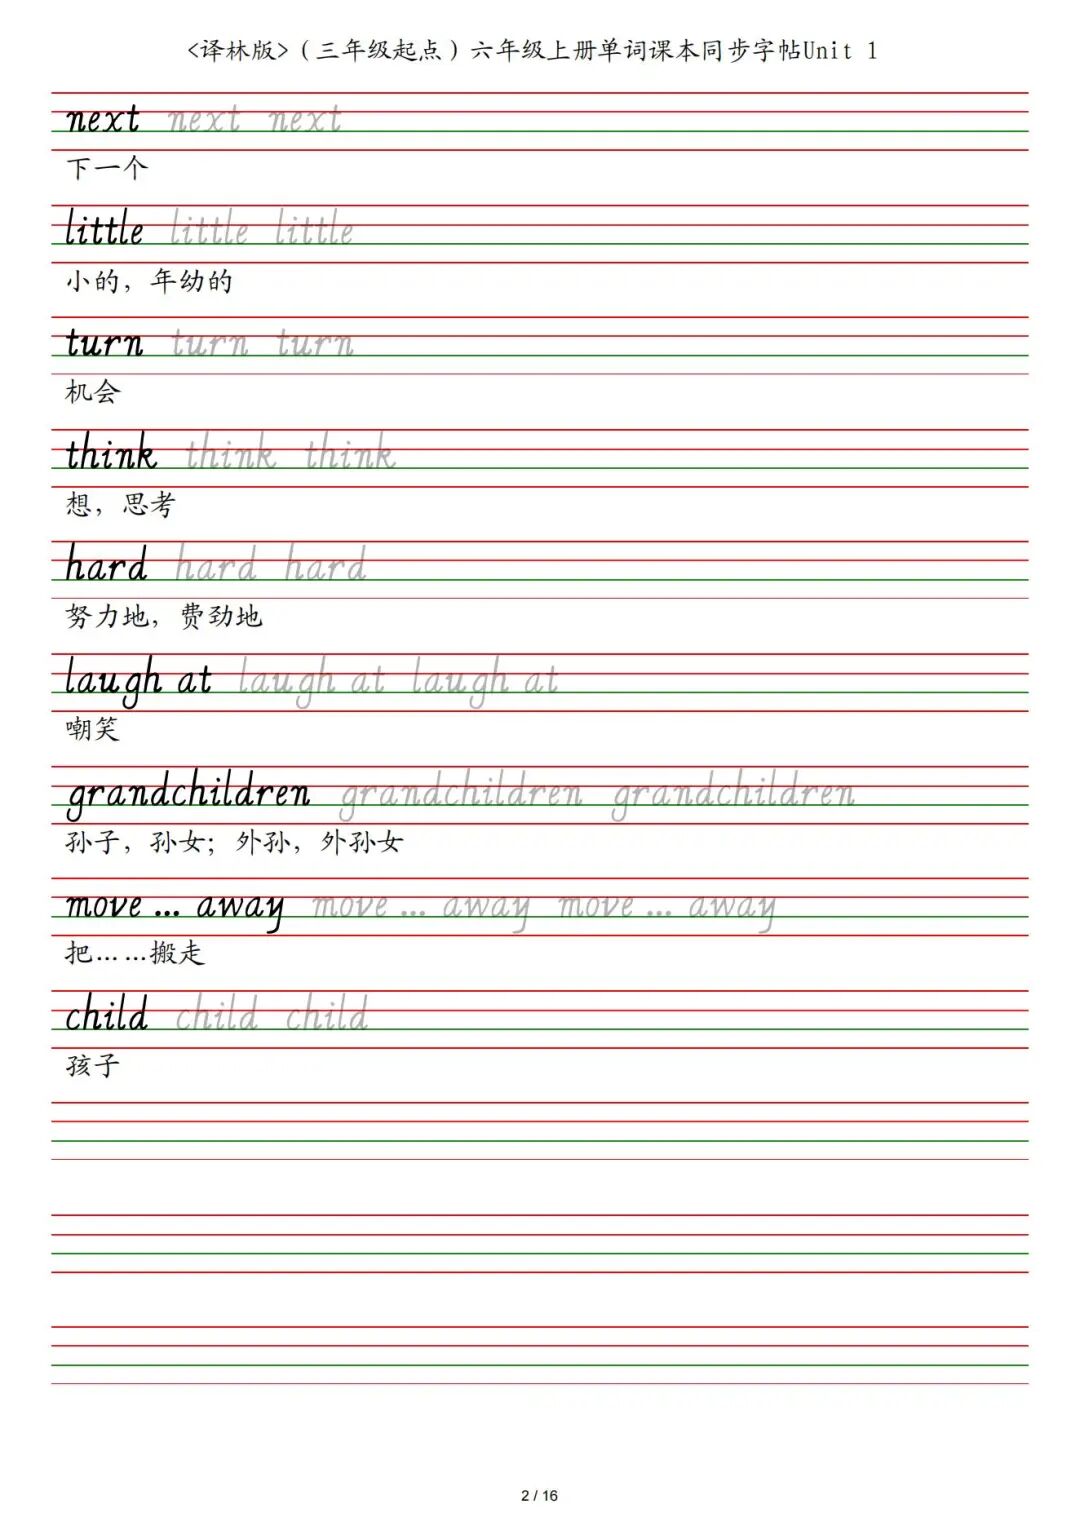 <译林版>（三年级起点）六年级上册单词课本同步字帖Unit 1
next next next
下一个
little little little
小的，年幼的
turn turn turn
机会
think think think
想，思考
hard hard hard
努力地，费劲地
laugh at laugh at laugh at
嘲笑
grandchildren grandchildren grandchildren
孙子，孙女；外孙，外孙女
move ... away move ... away move ... away
把……搬走
child child child
孩子
2 / 16